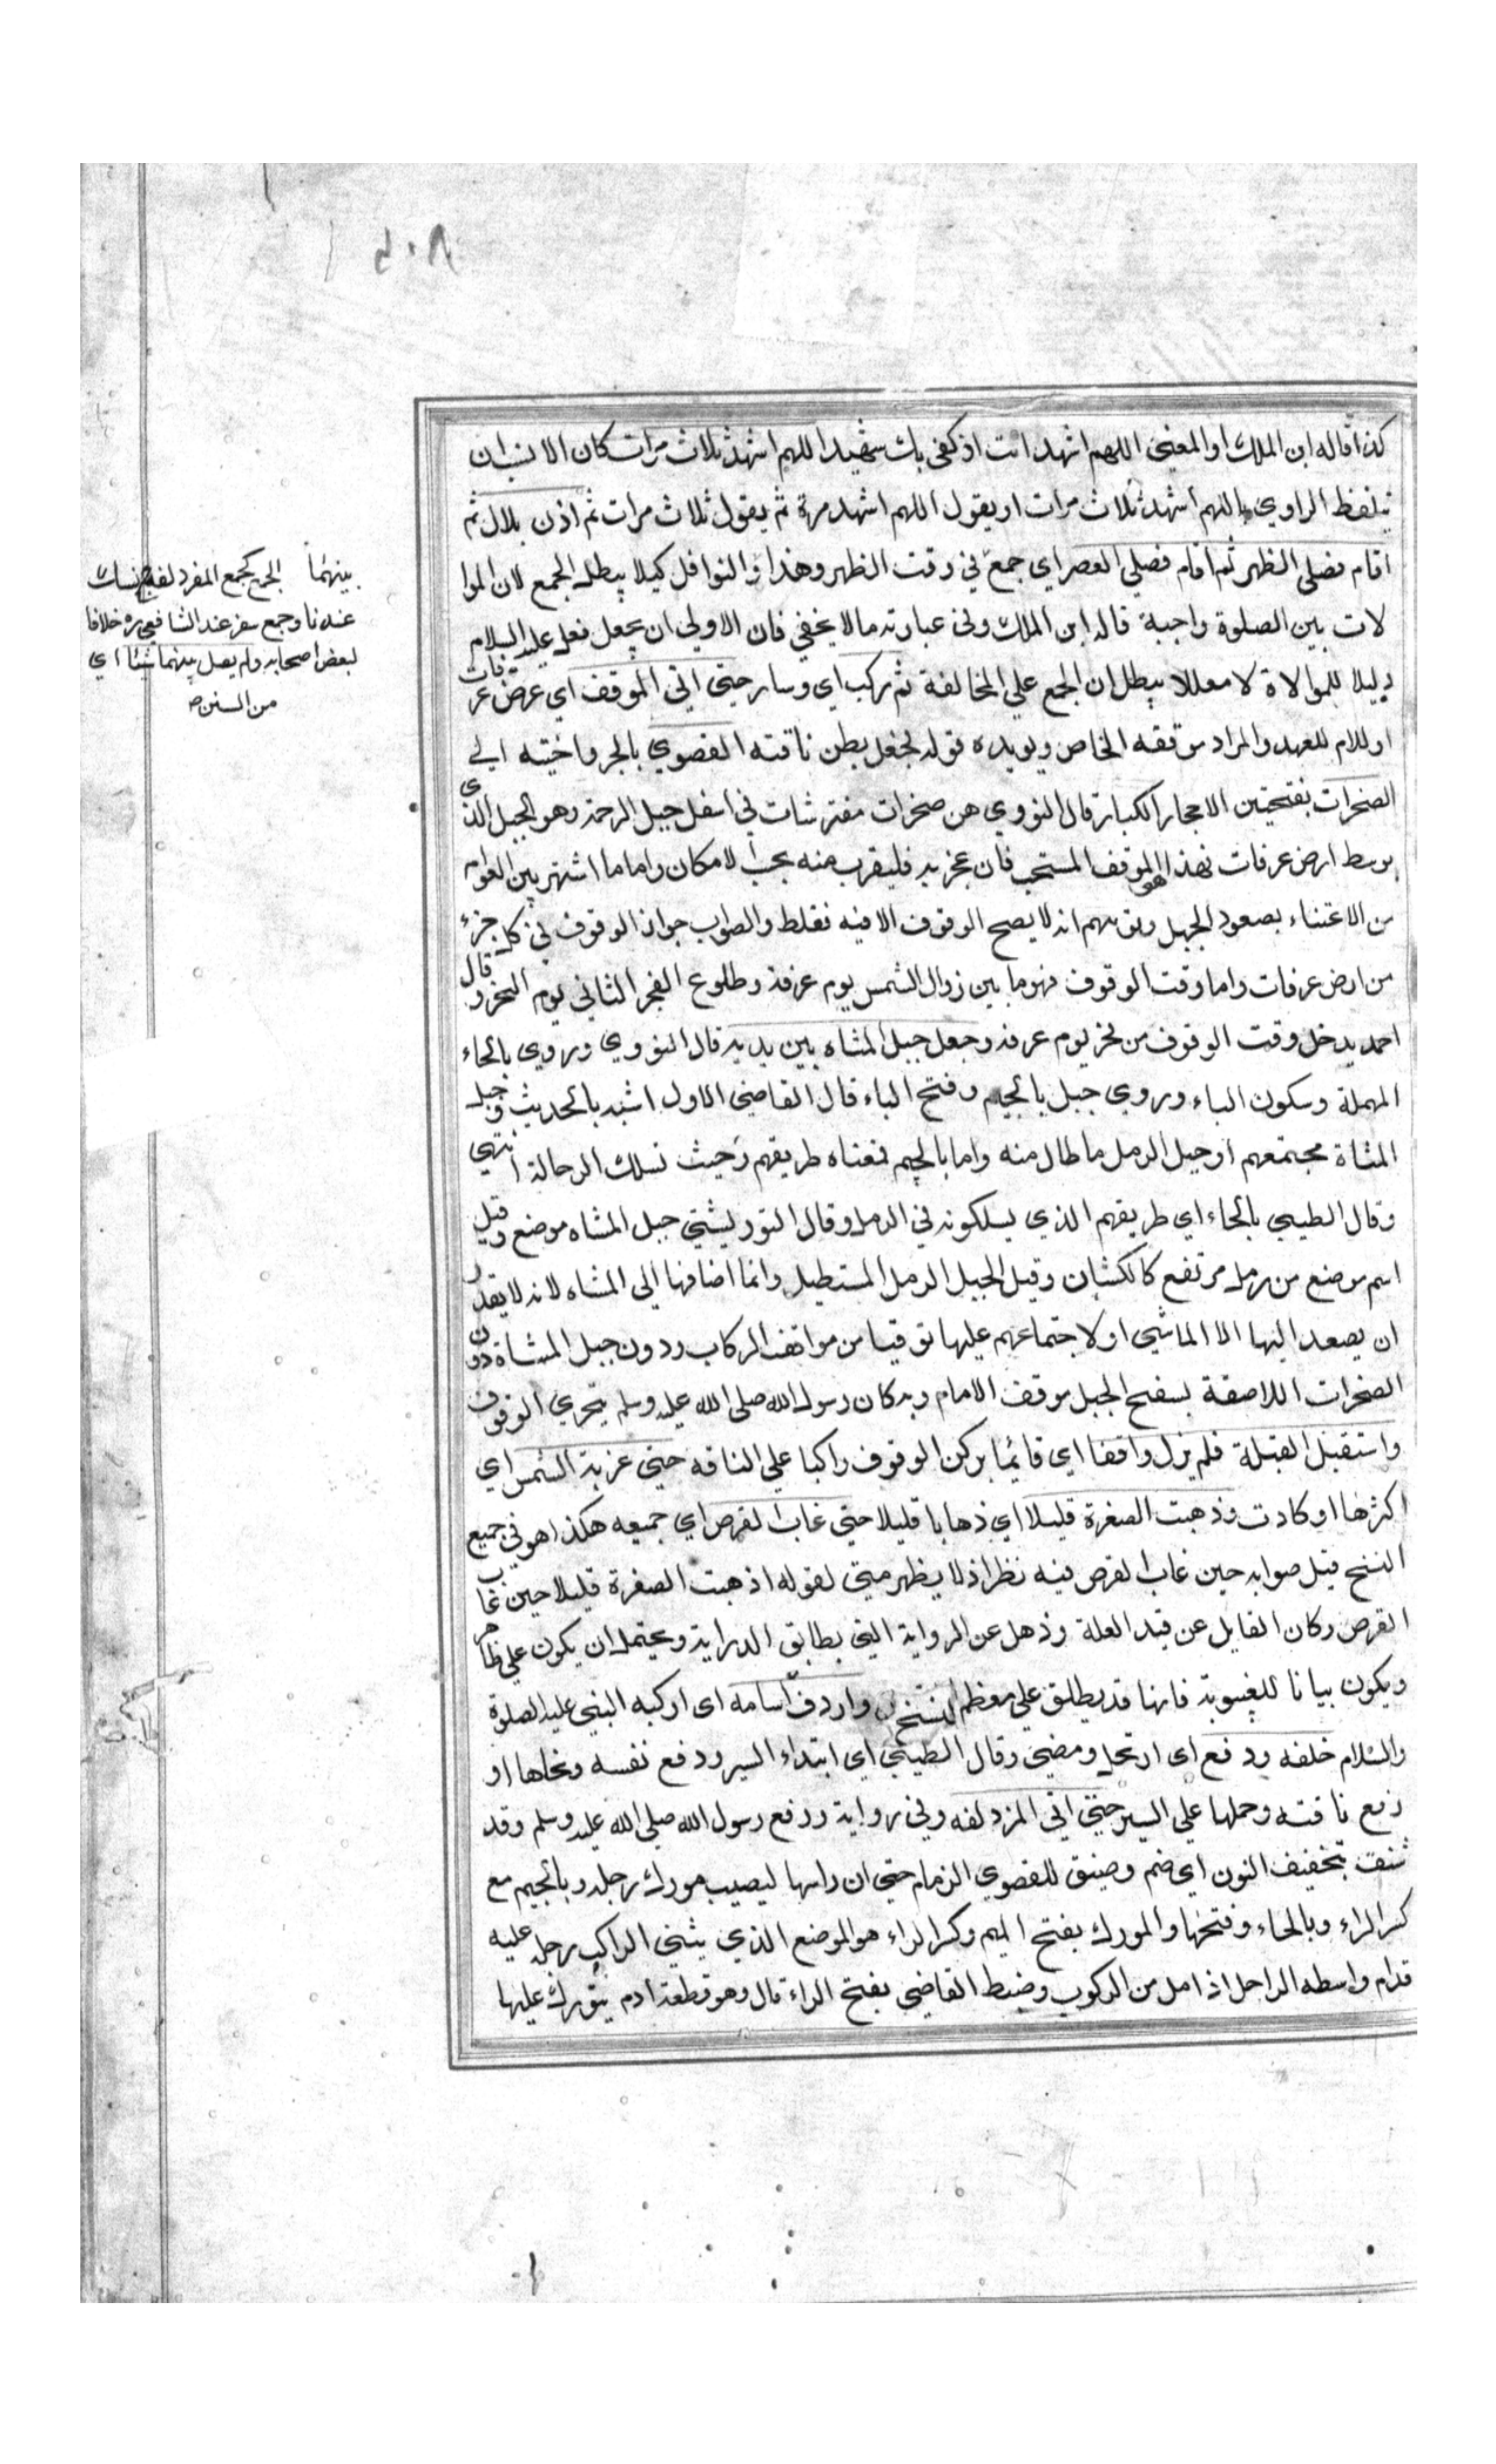 كذا قاله ابن الملك او المعنى اللهم اشهد انت اذ كفى بك شهيدا اللهم اشهد ثلاث مرات كان الانسان
يتلفظ الراوي باللهم اشهد ثلاث مرات او يقول اللهم اشهد مرة ثم يقول ثلاث مرات ثم اذن بلال ثم
اقام فصلى الظهر ثم اقام فصلي العصر اي جمع في وقت الظهر وهذا والنوافل كيلا يبطل الجمع لان الموا
لات بين الصلوة واجبة قاله ابن الملك وفى عبارته مالا يخفي فان الاولي ان يجعل فعله عليه السلام
دليلا للموالاة لا معللا يبطل ان الجمع علي المخالفة ثم ركب اي وسار حتى اتي الموقف اي عرض عرفات
او للام للعهد والمراد موقفه الخاص ويويده قوله فجعل بطن ناقته القصوي بالجر واختيه الي
الصخرات بفتحتين الاحجار الكبار قال النووي هن صخرات مفترشات في اسفل جبل الرحمة وهو الجبل الذي
بوسط ارض عرفات فهذا هو الموقف المستحب فان عجز به فليقرب منه بحب الامكان واما ما اشتهر بين العوام
من الاعتناء بصعود الجبل وتوهمهم انه لا يصح الوقوف الا فيه فغلط والصواب جواز الوقوف في كل جزء
من ارض عرفات واما وقت الوقوف فهو ما بين زوال الشمس يوم عرفة وطلوع الفجر الثاني يوم النحر وقال
احمد يدخل وقت الوقوف من فجر يوم عرفه وجعل جبل المشاه بين يديه قال النووي وروي بالحاء
المهملة وسكون الباء وروي جبل بالجيم وفتح الباء قال القاضي الاول اشبه بالحديث وحبل
المشاة مجتمعهم او حبل الرمل ما طال منه واما بالجيم فمعناه طريقهم وحيث تسلك الرحالة انتهي
وقال الطيبي بالحاء اي طريقهم الذي يسلكونه في الرمل وقال التوربشتي حبل المشاه موضع وقيل
اسم موضع من رمل مرتفع كالكثبان وقيل الحبل الرمل المستطيل وانما اضافها الي المشاه لانه لا يقدر
ان يصعد اليها الا الماشي او لاجتماعهم عليها توقيا من مواقف الركاب ودون جبل المشاة دون
الصخرات اللاصقة بسفح الجبل موقف الامام وبه كان رسول الله صلى الله عليه وسلم يتحري الوقوف
واستقبل القبلة فلم يزل واقفا اي قايما بركن الوقوف راكبا علي الناقه حتى غربة الشمس اي
اكثرها او كادت وذهبت الصفرة قليلا اي ذهابا قليلا حتى غاب القرص اي جميعه هكذا هو في جميع
النسخ قيل صوابه حين غاب القرص فيه نظر اذ لا يظهر متى لقوله اذ هبت الصفرة قليلا حين غاب
القرص وكان القايل عن قيد العلة وذهل عن الرواية التي يطابق الدراية ويحتمل ان يكون علي ظاهره
ويكون بيانا للغيبوبة فانها قد يطلق علي معظم النسخ واردف اسامه اى اركبه النبي عليه الصلوة
والسلام خلفه ودفع اى ارتحل ومضي وقال الطيبي اي ابتداء السير ودفع نفسه ونحاها او
دفع ناقته وحملها علي السير حتى اتي المزدلفه وفي رواية ودفع رسول الله صلي الله عليه وسلم وقد
شنق بتخفيف النون اي ضم وضيق للقصوي الزمام حتي ان راسها ليصيب مورك رجله وبالجيم مع
كسر الراء وبالحاء وفتحها والمورك بفتح الميم وكسر الراء هو الموضع الذي يثني الراكب رجله عليه
قدام واسطه الراحل اذا مل من الركوب وضبط القاضي بفتح الراء قال وهو قطعة ادم يتورك عليها
بينهما الجمع كجمع المفرد لفه نسك
عندنا وجمع سفر عند الشافعي ره خلافا
لبعض اصحابه ولم يصل بينهما شيئا اي
من السنن صح